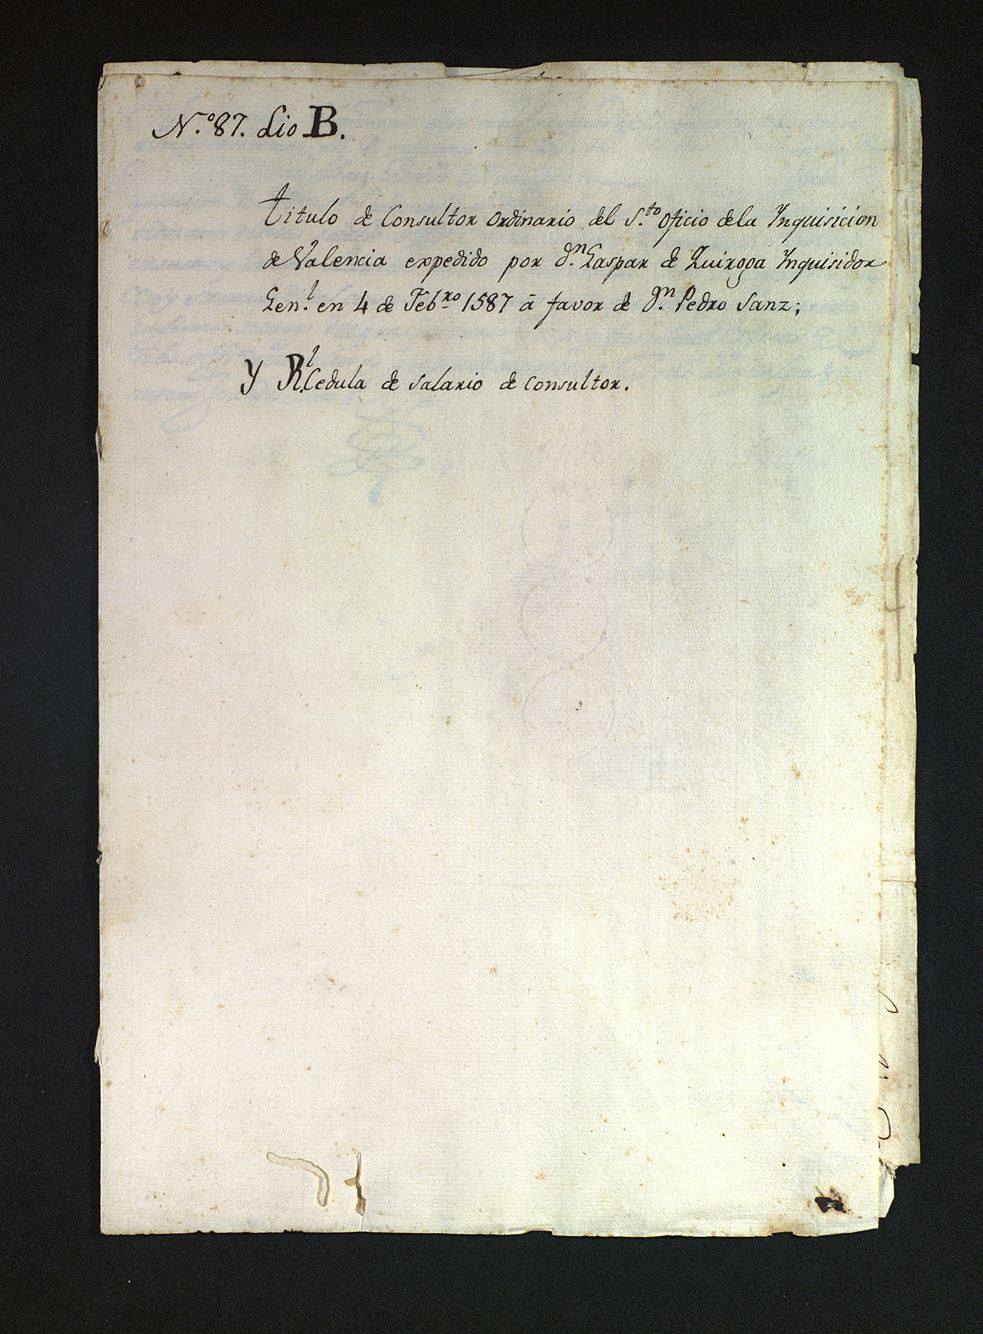 N.º 87. Lio B.
Titulo de Consultor Ordinario del S.to Oficio dela Ynquisicion
de Valencia expedido por D.n Gaspar de Quirogoa Ynquisidor
Gen.l en 4 de Feb.ro 1587 â favor de D.n Pedro Sanz;
Y R.l Cedula de Salario de Consultor.